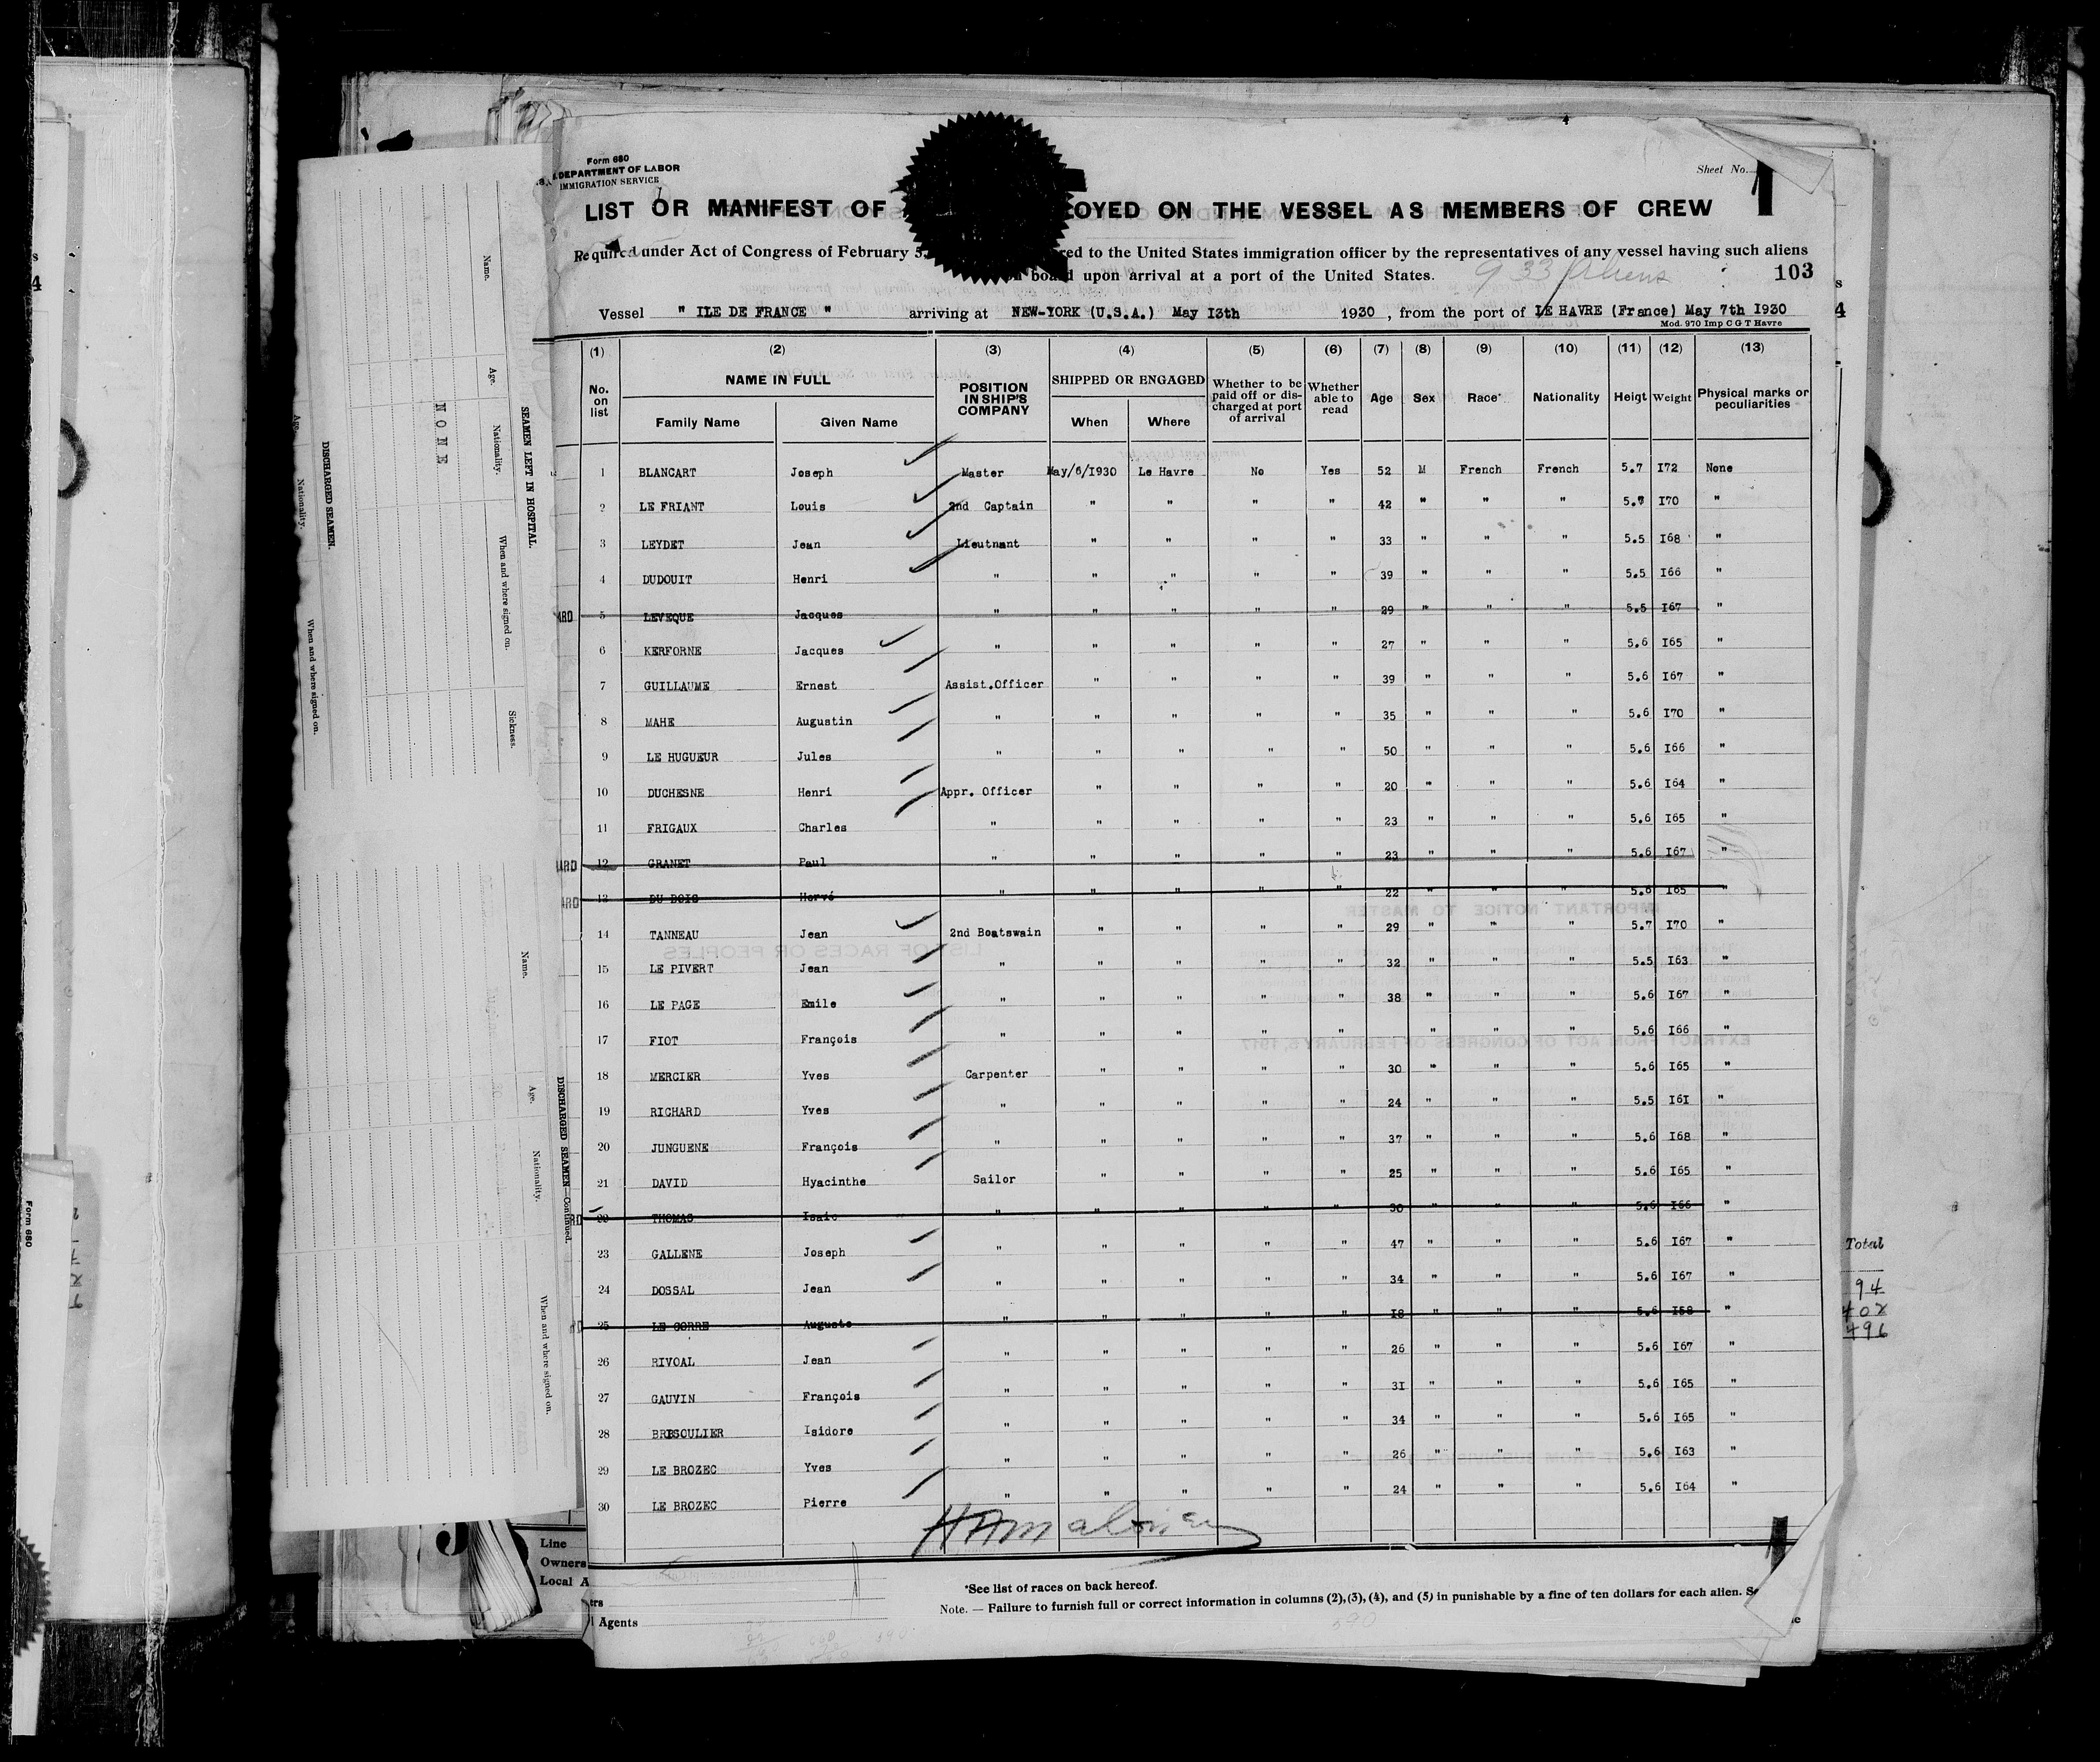 Form 680
DEPARTMENT OF LABOR
IMMIGRATION SERVICE
Sheet No. 1
LIST OR MANIFEST OF OYED ON THE VESSEL AS MEMBERS OF CREW
Required under Act of Congress of February 5, red to the United States immigration officer by the representatives of any vessel having such aliens
board upon arrival at a port of the United States.
933 Aliens
103
Vessel " ILE DE FRANCE " arriving at NEW-YORK (U.S.A.) May I3th 1930 , from the port of LE HAVRE (France) May 7th I930
Mod. 970 Imp C G T Havre
(1) (2) (3) (4) (5) (6) (7) (8) (9) (10) (11) (12) (13)
No. on list NAME IN FULL Family Name Given Name POSITION IN SHIP'S COMPANY SHIPPED OR ENGAGED When Where Whether to be paid off or discharged at port of arrival Whether able to read Age Sex Race* Nationality Heigt Weight Physical marks or peculiarities
1 BLANCART Joseph Master May/6/1930 Le Havre No Yes 52 M French French 5.7 I72 None
2 LE FRIANT Louis 2nd Captain " " " " 42 " " " 5.7 I70 "
3 LEYDET Jean Lieutnant " " " " 33 " " " 5.5 I68 "
4 DUDOUIT Henri " " " " " 39 " " " 5.5 I66 "
5 LEVEQUE Jacques " " " " " 29 " " " 5.5 I67 "
6 KERFORNE Jacques " " " " " 27 " " " 5.6 I65 "
7 GUILLAUME Ernest Assist.Officer " " " " 39 " " " 5.6 I67 "
8 MAHE Augustin " " " " " 35 " " " 5.6 I70 "
9 LE HUGUEUR Jules " " " " " 50 " " " 5.6 I66 "
10 DUCHESNE Henri Appr. Officer " " " " 20 " " " 5.6 I64 "
11 FRIGAUX Charles " " " " " 23 " " " 5.6 I65 "
12 GRANET Paul " " " " " 23 " " " 5.6 I67 "
13 DU BOIS Hervé " " " " " 22 " " " 5.6 I65 "
14 TANNEAU Jean 2nd Boatswain " " " " 29 " " " 5.7 I70 "
15 LE PIVERT Jean " " " " " 32 " " " 5.5 I63 "
16 LE PAGE Emile " " " " " 38 " " " 5.6 I67 "
17 FIOT François " " " " " " " " 5.6 I66 "
18 MERCIER Yves Carpenter " " " " 30 " " " 5.6 I65 "
19 RICHARD Yves " " " " " 24 " " " 5.5 I6I "
20 JUNGUENE François " " " " " 37 " " " 5.6 I68 "
21 DAVID Hyacinthe Sailor " " " " 25 " " " 5.6 I65 "
22 THOMAS Isaic " " " " " 30 " " " 5.6 I66 "
23 GALLENE Joseph " " " " " 47 " " " 5.6 I67 "
24 DOSSAL Jean " " " " " 34 " " " 5.6 I67 "
25 LE CORRE Auguste " " " " " I8 " " " 5.6 I58 "
26 RIVOAL Jean " " " " " 26 " " " 5.6 I67 "
27 GAUVIN François " " " " " 3I " " " 5.6 I65 "
28 BRESOULIER Isidore " " " " " 34 " " " 5.6 I65 "
29 LE BROZEC Yves " " " " " 26 " " " 5.6 I63 "
30 LE BROZEC Pierre " " " " " 24 " " " 5.6 I64 "
*See list of races on back hereof.
Note. — Failure to furnish full or correct information in columns (2), (3), (4), and (5) in punishable by a fine of ten dollars for each alien.
SEAMEN LEFT IN HOSPITAL.
Name. Age. Nationality. When and where signed on. Sickness.
NONE
DISCHARGED SEAMEN.
Age. Nationality. When and where signed on.
DISCHARGED SEAMEN—Continued.
Name. Age. Nationality. When and where signed on.
Line
Owners
Local A
Agents
Total
94
402
496
Form 680